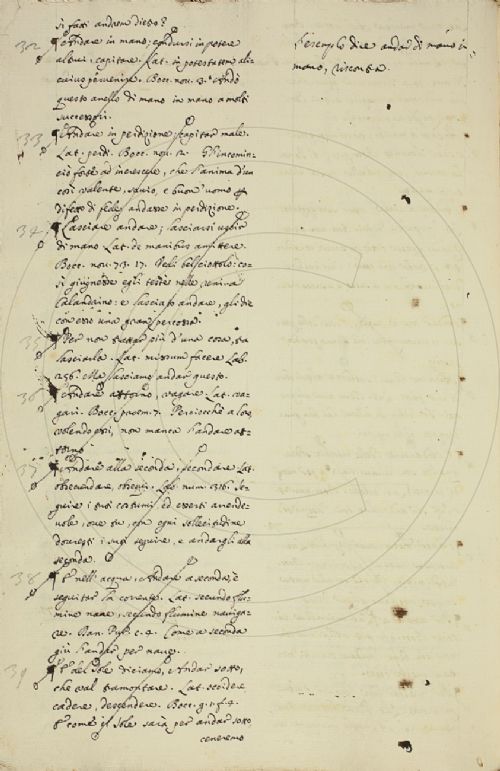 si fatti andarm dieto?
32 ¶ Andare in mano; condursi in potere
altrui, capitare. Lat. in potestatem ali-
cuius pervenire. Bocc. nov. 3. Andò
questo anello di mano in mano a molti
successori.
33 ¶ Andare in perdizione, capitar male.
Lat. perdi. Bocc. nov. 2. Gl'incomin-
ciò forte ad increscere, che l'anima d'un
così valente, savio, e buon uomo per
difetto di fede andasse in perdizione.
34 ¶ Lasciare andare; lasciarsi uscir
di mano. Lat. de manibus amittere.
Bocc. nov. 73. 17. co-
sì giugnesse egli teste nelle renina
Calandrino: e lasciato andare, gli diè
con esso una gran percossa.
35 ¶ Per non trattar più d'una cosa, ma
lasciarla. Lat. missum facere. Lab.
256. Ma lasciamo andar questo.
36 ¶ Andare attorno, vagare. Lat. va-
gari. Bocc. proem. 7. Perciocchè a loro
volendo essi, non manca l'andare at-
torno.
37 ¶ Andare alla seconda, secondare. Lat.
obsecundare, obsequi. Lab. num. 316. Se-
guire i suoi costumi, ed esserti arrende-
vole, ove tu, con ogni sollecitudine
dovresti i suoi seguire, e andargli alla
seconda.
38 ¶ E nell' acqua, Andare a seconda, è
seguitar la corrente. Lat. secundo flu-
mine nave, secundo flumine naviga-
re. Dan. Purg. c. 4. Come a seconda
giù l'andar per nave.
39 ¶ E del Sole diciamo, Andar sotto,
che val tramontare. Lat. occidere
cadere, descendere. Bocc. g. 1. f. 4.
E come il Sole sarà per andar sotto
ceneremo
L'esemplo dice andar di mano in
mano,